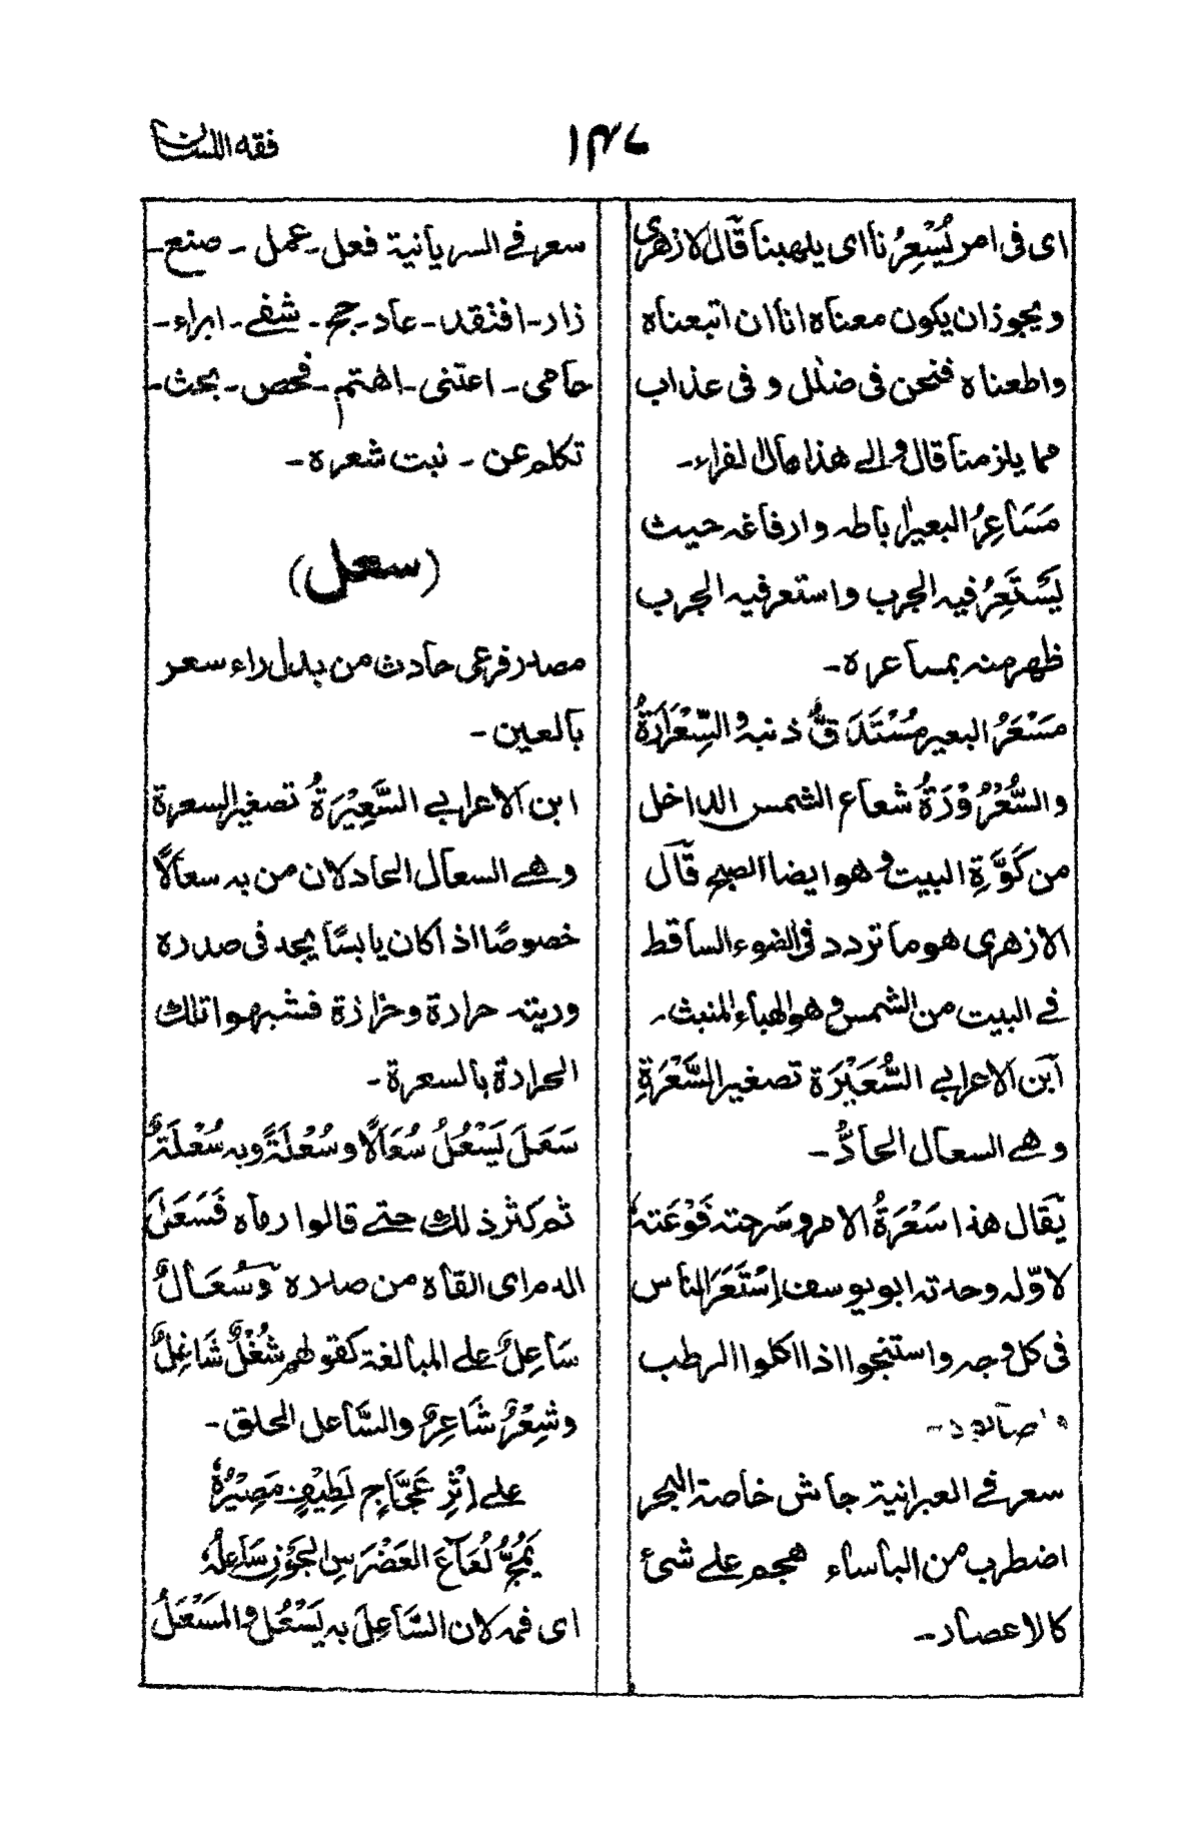 فقه اللسان
۱۴۷
ای فی امر يُسْعِرُنا ای يلهبنا قال الازهری
ويجوزان يكون معناه اناان اتبعناه
واطعناه فنحن فی ضلٰل و فی عذاب
مما يلزمنا قال والے هذا مال الفراء -
مَسَاعِرُ البعير اٰباطه وارفاغه حيث
يَسْتَعِرُ فيه الجرب واستعر فيه الجرب
ظهر منه بمساعره -
مَسْعَرُ البعير مُسْتَدَقُّ ذنبه والسِّعْرَارَةُ
والسُّعْرُوْرَةُ شعاع الشمس الداخل
من كَوَّةِ البيت وهو ايضا الصبح قال
الازهری هو ما تردد فی الضوء الساقط
فے البيت من الشمس وهو الهباء المنبث -
ابن الاعرابے السُّعَيْرَة تصغير السَّعْرَةِ
وهے السعال الحادُّ -
يقال هذا سَعْرَةُ الامر وسرحته فَوْعَتهُ
لاوّله وحدته ابو يوسف اِسْتَعَرَ الناس
فی كل وجه واستنجوا اذا اكلوا الرطب
سعر فے العبرانية جاش خاصة البحر
اضطرب من الباساء هجم علے شئ
كالاعصار -
سعر فے السريانية فعل - عمل - صنع -
زار - افتقد - عاد - حج - شفے - ابراء -
حامی - اعتنی - اهتم - فحص - بحث -
تكلم عن - نبت شعره -
(سعل)
مصدر فرعی حادث من بدل راء سعر
بالعين -
ابن الاعرابے السَّعِيْرَةُ تصغير السعرة
وهے السعال الحاد لان من به سعالًا
خصوصًا اذا كان يابسًا يجد فی صدره
وريته حرارة وخزازة فشبهوا تلك
الحرارة بالسعرة -
سَعَلَ يَسْعُلُ سُعَالًا وسُعْلَةً وبه سُعْلَةٌ
ثم كثر ذلك حتے قالوا رماه فَسَعَلَ
الدم ای القاه من صدره وسُعَالٌ
سَاعِلٌ علے المبالغة كقولهم شُغْلٌ شَاغِلٌ
وشِعْرٌ شَاعِرٌ والسَّاعل الحلق -
علے اِثْرِ عَجَّاجٍ لَطِيْفٍ مَصِيْرُهٗ
يَمُجُّ لُعَاعَ العَضْرَسِ الجَوْنِ سَاعِلُهٗ
ای فمه لان السَّاعِلَ به يَسْعُل والمَسْعَلُ